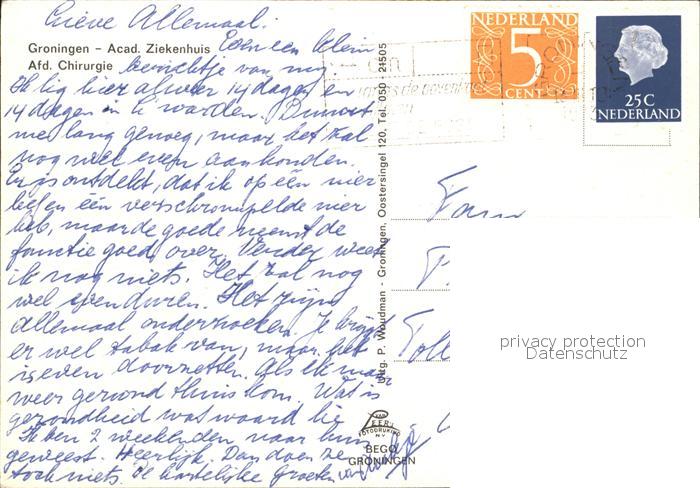 Lieve Allemaal.
Groningen - Acad. Ziekenhuis
Afd. Chirurgie
Even een klein
berichtje van mij
Ik lig hier al weer 14 dagen en
14 dagen in L'warden. Duurt
me lang genoeg, maar het zal
nog wel even aanhouden.
Er is ontdekt, dat ik op één nier
leef en één verschrompelde nier
heb, maar de goede neemt de
functie goed over. Verder weet
ik nog niets. Het zal nog
wel even duren. Het zijn
allemaal onderzoeken. Je krijgt
er wel tabak van, maar het
is even doorzetten. Als ik maar
weer gezond thuis kom. Wat is
gezondheid wat waard hè
Ik ben 2 weekenden naar huis
geweest. Heerlijk. Dan doen ze
toch niets. De hartelijke groeten van
Uitg. P. Woudman - Groningen, Oostersingel 120, Tel. 050 - 21505
VAN
LEER'S
FOTODRUKIND
N.V.
BEGO
GRONINGEN
NEDERLAND
5
CENT
25 C
NEDERLAND
Fam
privacy protection
Datenschutz